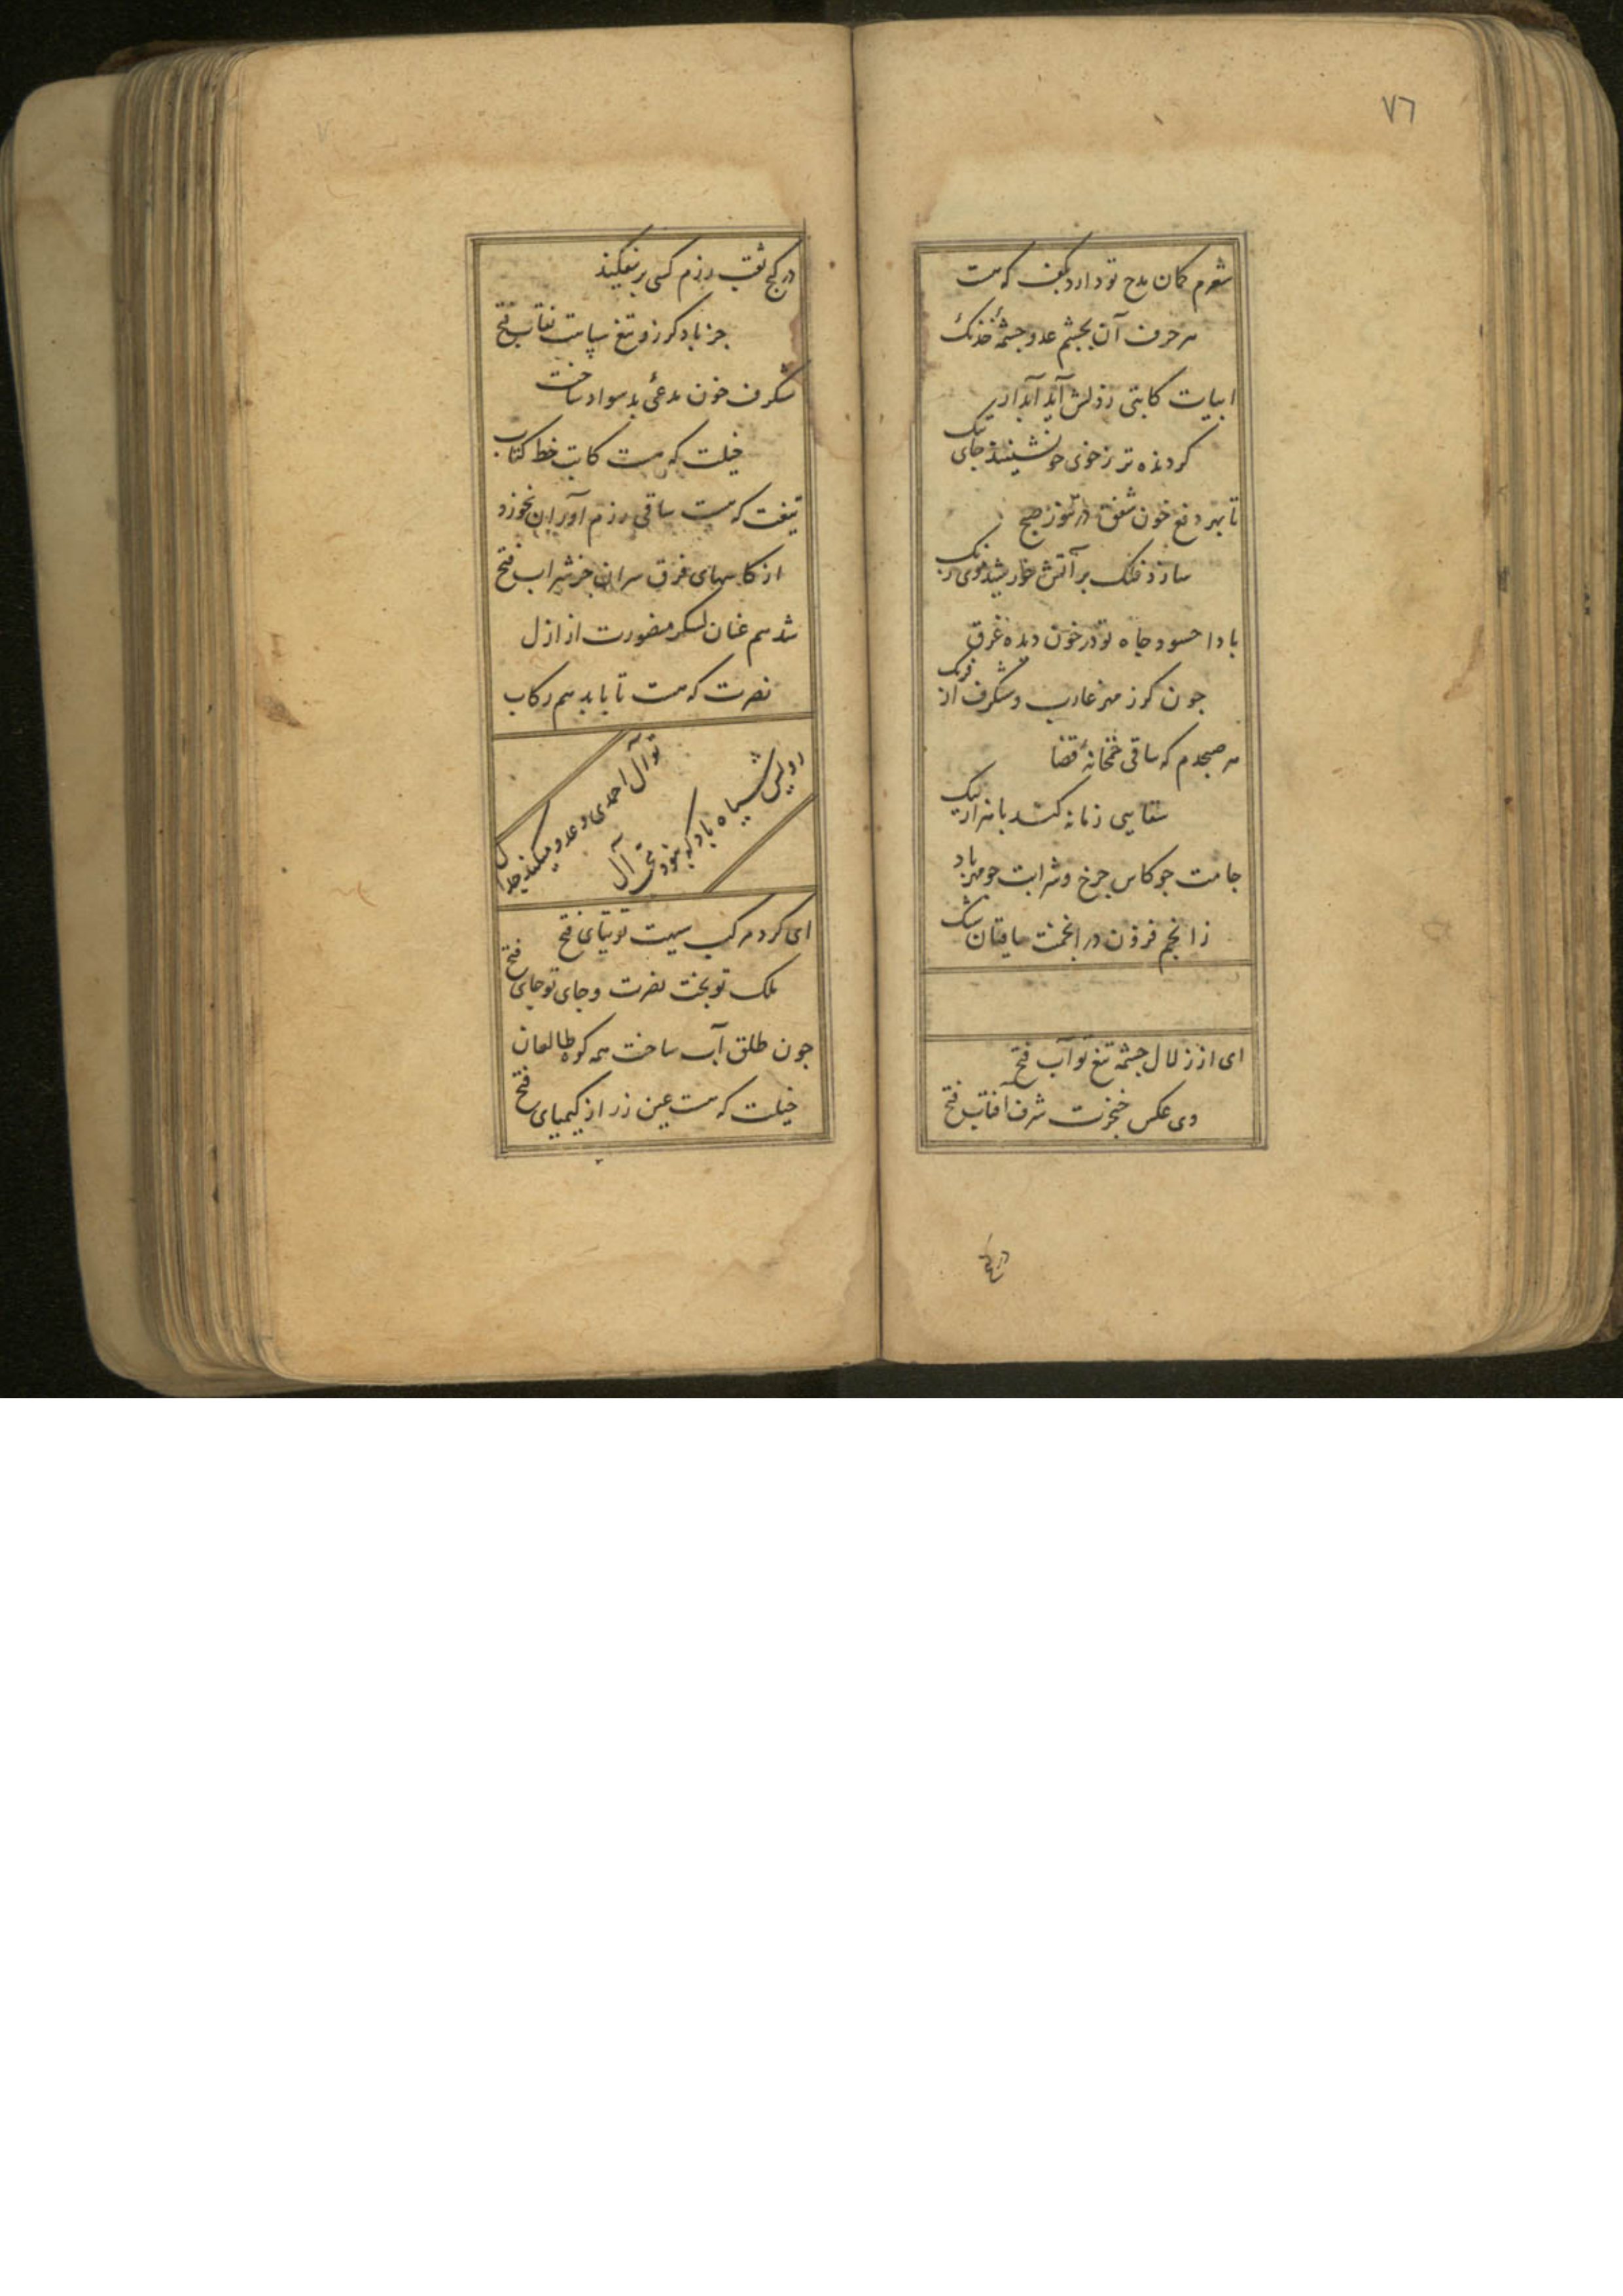 ٧٦
شعرم کمان مدح تو دارد بکف که هست
هر حرف آن بچشم عدو چشمهٔ خدنک
ابیات کاتبی ز دلش آید آبدار
کردنده تر ز خوی خوشینند جای
تا بهر دفع خون شفق در تموز صبح
سازد فلک بر آتش خورشید
بادا حسود جاه تو در خون دیده غرق
جون کرز مهر غارب و شنکرف از فرنک
هر صبحدم که ساقی خمخانهٔ قضا
سقایی زمانه کند با هزار
جامت جو کاس جرخ و شرابت جو مهر باد
ز انجم فزون در انجمنت ساقیان شنک
ای از زلال جشمه تیغ تو آب فتح
وی عکس خنجرت شرف آفتاب فتح
در کج
در کج نقب رزم کسی بر نیفکند
جز باد کرز و تیغ سپاهت نقاب فتح
شنکرف خون مدعی بد سواد ساخت
خیلت که هست کاتب خط کتاب
تیغت که هست ساقی رزم آوران نخورد
از کاسهای فرق سران جز شراب فتح
شد هم عنان لشکر منصورت از ازل
نصرت که هست تا بابد هم رکاب
تو آل احمدی و عدو میکند جدل
رویش سیاه باد که نبود تحت آل
ای کرد مرکب سپهت توتیای فتح
ملک تو تخت نصرت و جای تو جای فتح
جون طلق آب ساخت همه کوه طالعان
خیلت که هست عین زر از کیمیای فتح